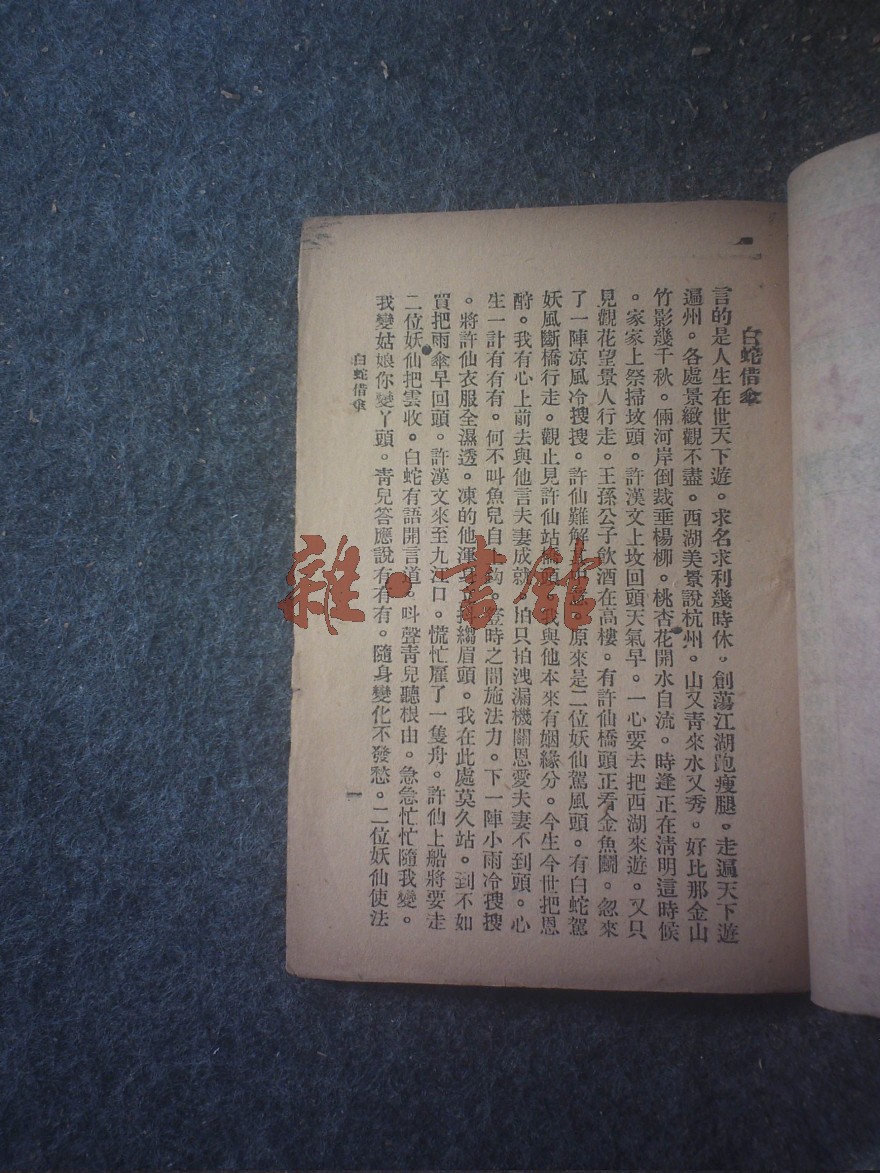 白蛇借傘
言的是人生在世天下遊。求名求利幾時休。創蕩江湖跑瘦腿。走遍天下遊
遍州。各處景緻觀不盡。西湖美景說杭州。山又青來水又秀。好比那金山
竹影幾千秋。倆河岸倒栽垂楊柳。桃杏花開水自流。時逢正在清明這時候
。家家上祭掃坟頭。許漢文上坟回頭天氣早。一心要去把西湖來遊。又只
見觀花望景人行走。王孫公子飲酒在高樓。有許仙橋頭正看金魚鬭。忽來
了一陣凉風冷搜搜。許仙難解其中意。原來是二位妖仙駕風頭。有白蛇駕
妖風斷橋行走。觀止見許仙站橋頭。我與他本來有姻緣分。今生今世把恩
酧。我有心上前去與他言夫妻成就。怕只怕洩漏機關恩愛夫妻不到頭。心
生一計有有有。何不叫魚兒自上鈎。登時之間施法力。下一陣小雨冷搜搜
。將許仙衣服全濕透。凍的他渾身抖縐眉頭。我在此處莫久站。到不如
買把雨傘早回頭。許漢文來至九江口。慌忙雇了一隻舟。許仙上船將要走
二位妖仙把雲收。白蛇有語開言道。呌聲青兒聽根由。急急忙忙隨我變。
我變姑娘你變丫頭。青兒答應說有有有。隨身變化不發愁。二位妖仙使法
白蛇借傘
一
雜·書館